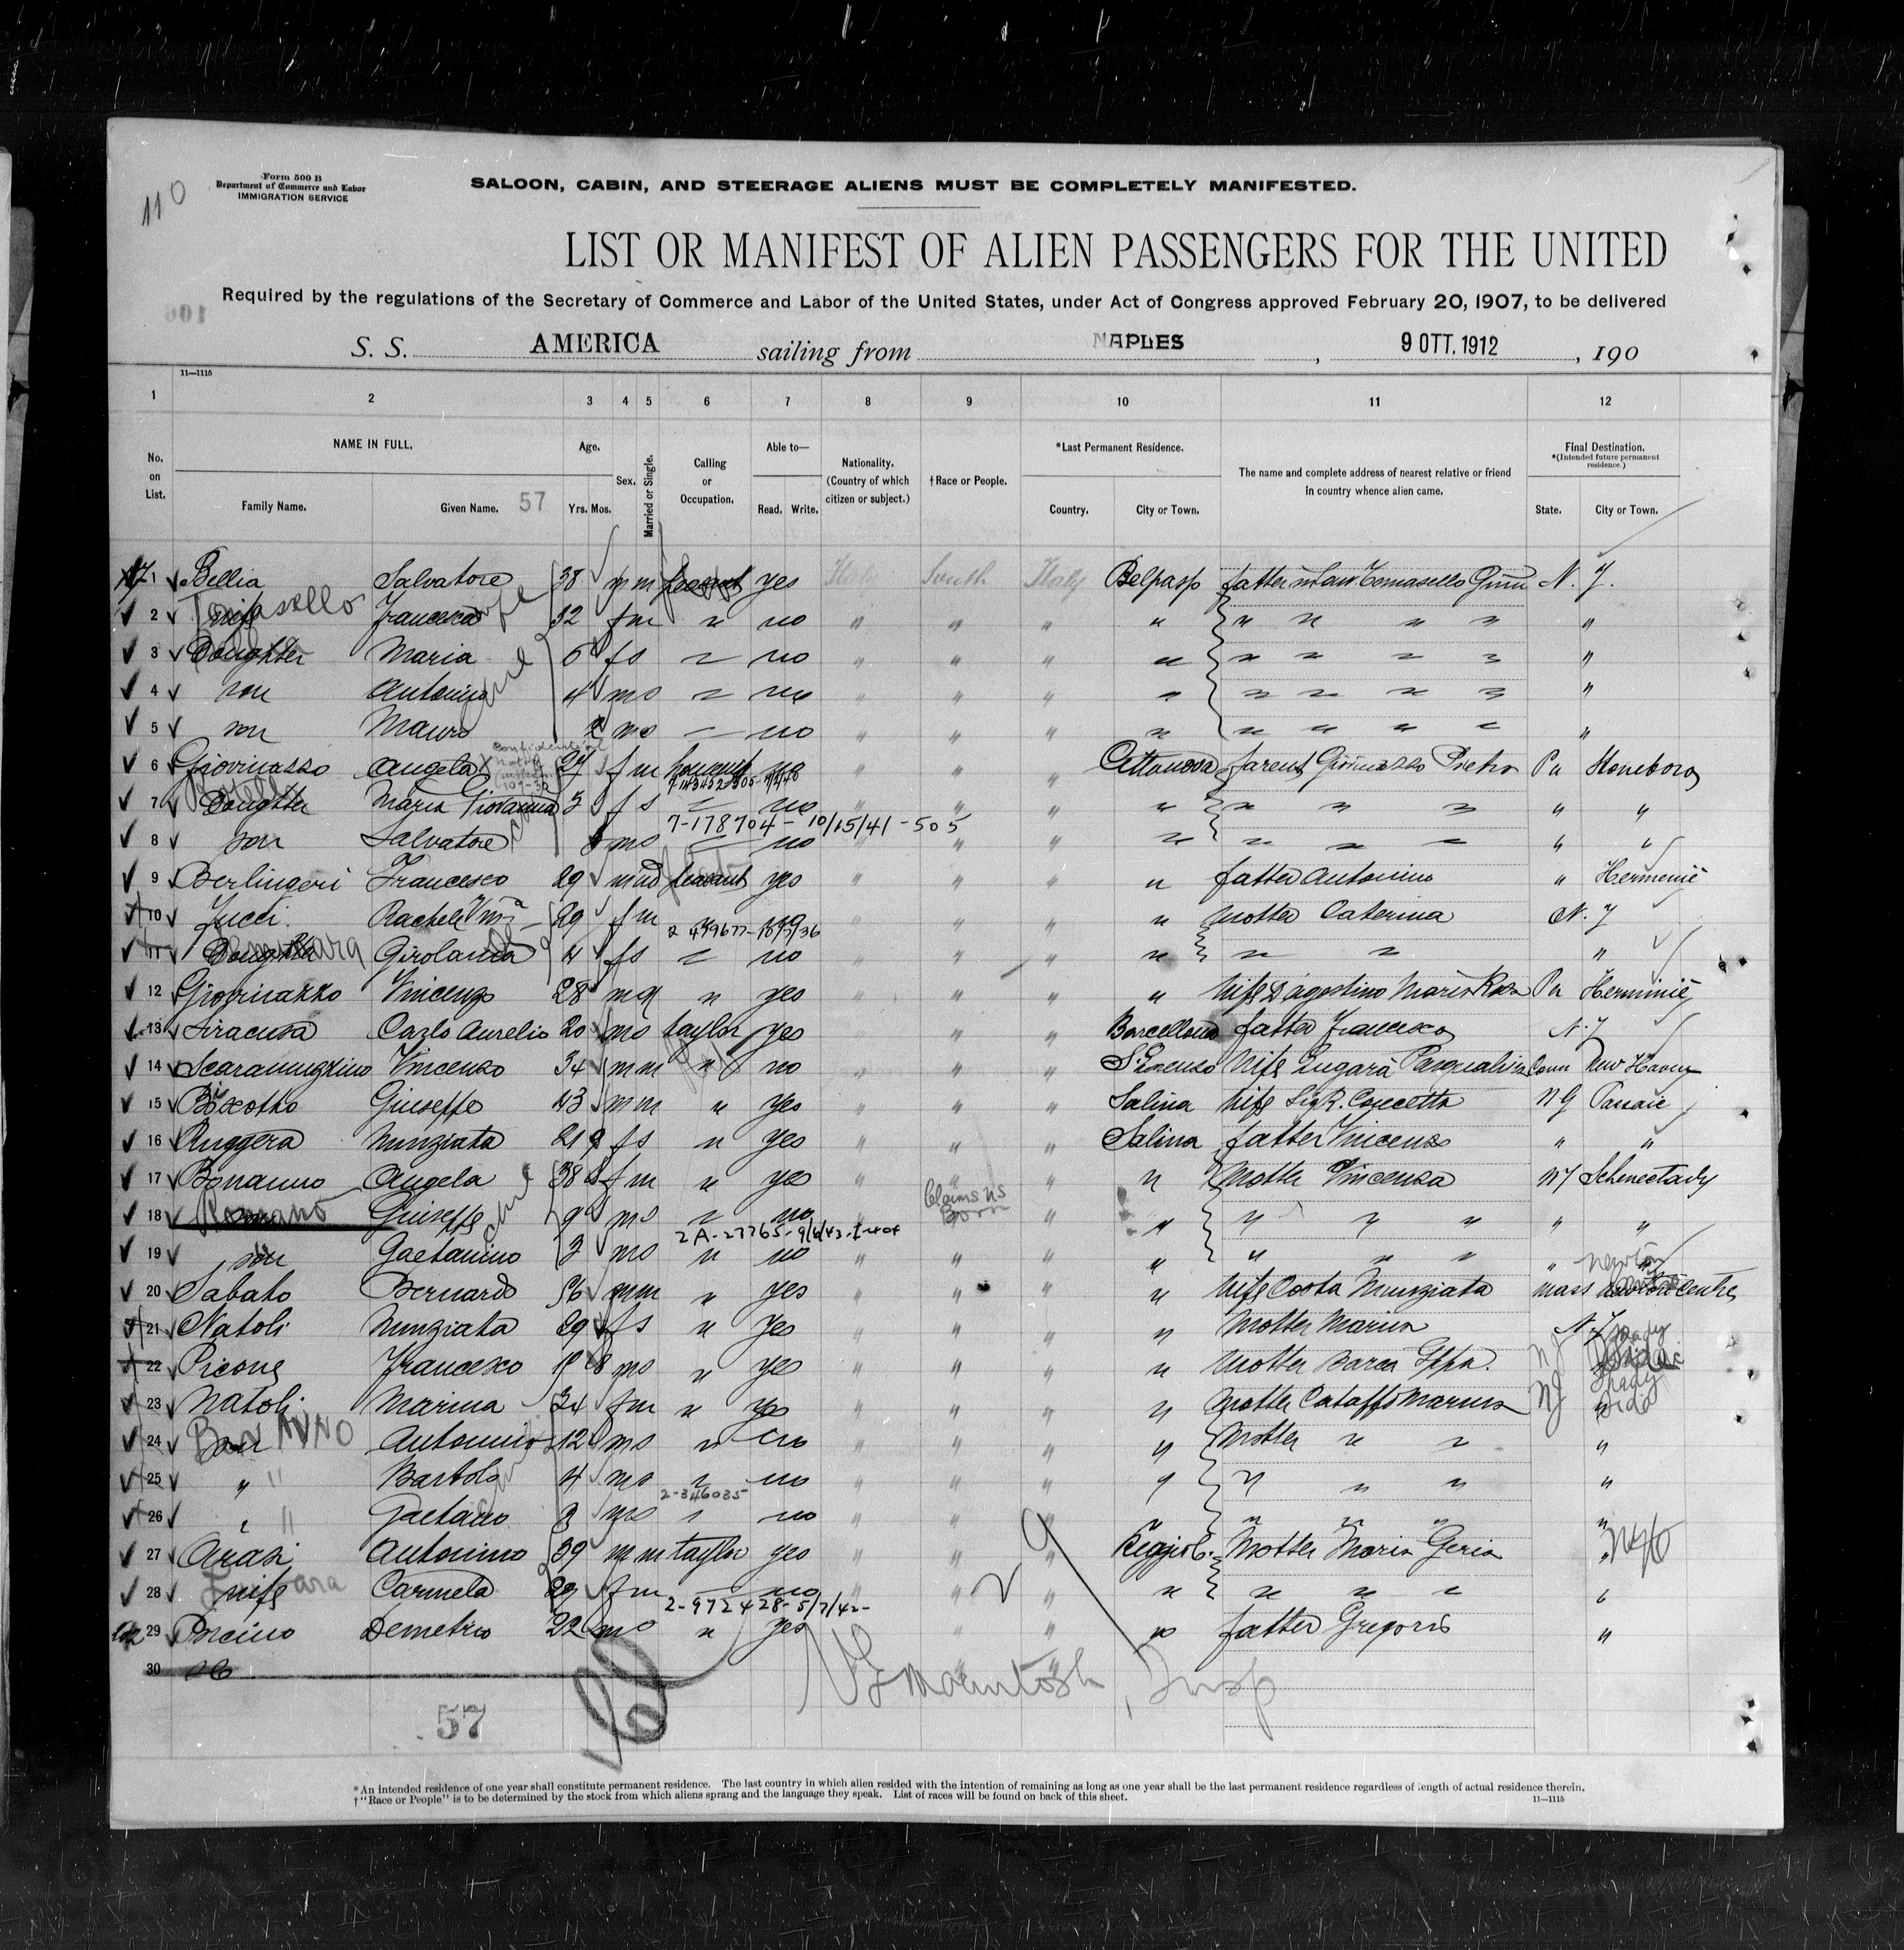 110
Form 500 B
Department of Commerce and Labor
IMMIGRATION SERVICE
SALOON, CABIN, AND STEERAGE ALIENS MUST BE COMPLETELY MANIFESTED.
LIST OR MANIFEST OF ALIEN PASSENGERS FOR THE UNITED
Required by the regulations of the Secretary of Commerce and Labor of the United States, under Act of Congress approved February 20, 1907, to be delivered
S. S. AMERICA sailing from NAPLES, 9 OTT. 1912, 190
11—1115
1 2 3 4 5 6 7 8 9 10 11 12
No. on List. NAME IN FULL. Family Name. Given Name. 57 Age. Yrs. Mos. Sex. Married or Single. Calling or Occupation. Able to— Read. Write. Nationality. (Country of which citizen or subject.) †Race or People. *Last Permanent Residence. Country. City or Town. The name and complete address of nearest relative or friend in country whence alien came. Final Destination. *(Intended future permanent residence.) State. City or Town.
1 Bellia Salvatore 38 m m peasant yes Italy South Italy Belpasso father in law Tomasello N. Y.
2 wife Tomasello Francesca 32 f m " no " " " " " " " " "
3 Daughter Maria 6 f s no " " " " " " " " "
4 son Antonino 4 m s no " " " " " " " " "
5 son Mauro m s no " " " " " " " " "
6 Giovinazzo Angela 27 f m no " " " Cittanova parent Giovinazzo Pietro Pa Stoneboro
7 Daughter Maria Giovanna 3 f s no " " " " " " " " "
7-178704- 10/15/41 -505
8 son Salvatore m s no " " " " " " " " "
9 Berlingeri Francesco 29 m peasant yes " " " " father Antonino " Herminie
10 Zucci Rachele 29 f m " " " " mother Caterina N. Y
11 Daughter Girolama 4 f s no " " " " " " "
12 Giovinazzo Vincenzo 28 m " yes " " " " wife D'agostino Maria Rosa Pa Herminie
13 Siracusa Carlo Aurelio 20 m s taylor yes " " " Barcellona father Francesco N. Y
14 Scaramuzzino Vincenzo 34 m m " no " " " S. Lorenzo wife Zugarà Pasqualina Conn New Haven
15 Giuseppe 43 m m " yes " " " Salina wife Concetta Passaic
16 Ruggera Nunziata 21 f s " yes " " " Salina father Vincenzo " "
17 Bonanno Angela 38 f m " yes " " " " mother Vincenza N Y Schenectady
18 Romano Giuseppe 9 m s no Claims US Born " " " " " " "
2A-27765-
19 son Gaetanino 3 m s " no " " " " " " " "
20 Sabato Bernardo 56 m m " yes " " " " wife Costa Nunziata Mass Newton Centre
21 Natoli Nunziata 29 f s " yes " " " " mother Marina N. Y
22 Picone Francesco 18 m s " yes " " " " mother Barca NJ
23 Natoli Marina 34 f m " yes " " " " mother Cataffo Marina NJ
24 son BONANNO Antonino 12 m s " no " " " " mother " " "
25 " " Bartolo 4 m s no " " " " " " " "
2-346035
26 " Gaetano 3 m s no " " " " " " " "
27 Arasi Antonino 39 m m taylor yes " " " Reggio C. mother Maria Geria "
28 wife Carmela 29 f m no " " " " " " "
2-972428- 5/7/42-
29 Porcino Demetrio 22 m s " yes " " " " father Gregorio "
30
McIntosh, Insp
57
*An intended residence of one year shall constitute permanent residence. The last country in which alien resided with the intention of remaining as long as one year shall be the last permanent residence regardless of length of actual residence therein.
†"Race or People" is to be determined by the stock from which aliens sprang and the language they speak. List of races will be found on back of this sheet.
11—1115